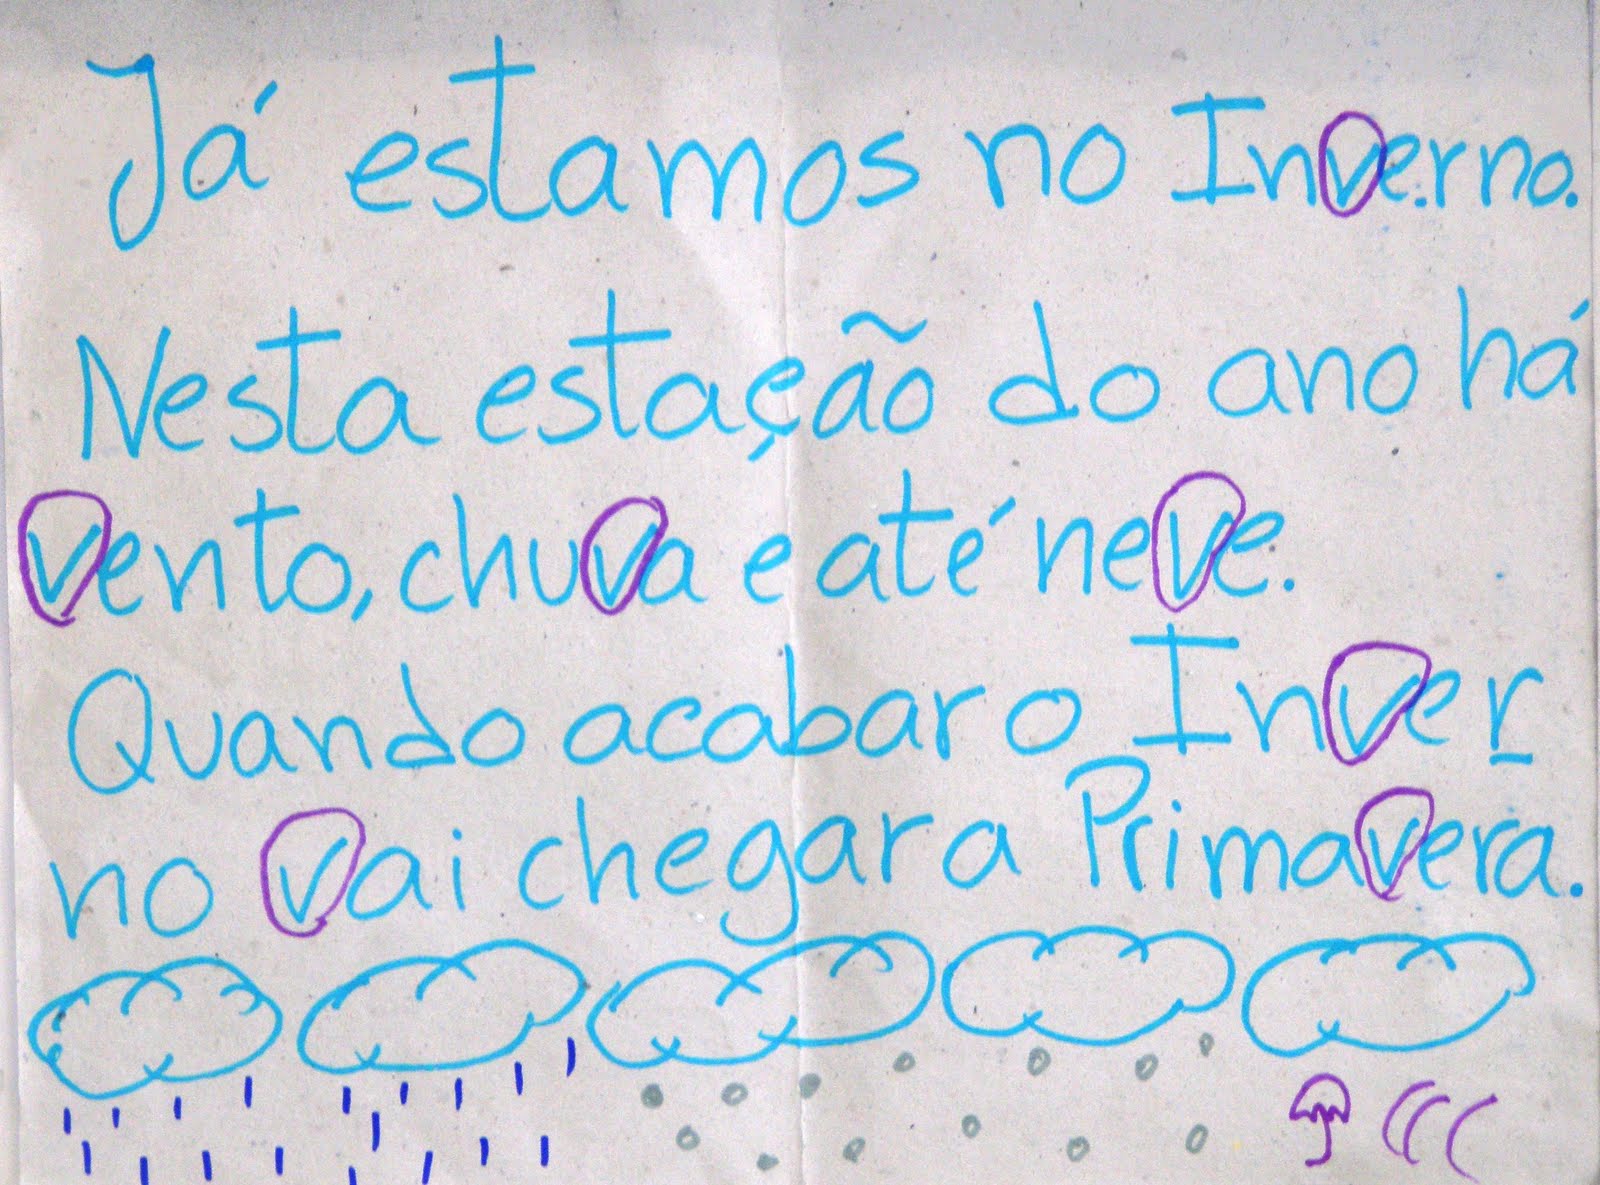 Já estamos no Inverno.
Nesta estação do ano há
vento, chuva e até neve.
Quando acabar o Inver
no vai chegar a Primavera.